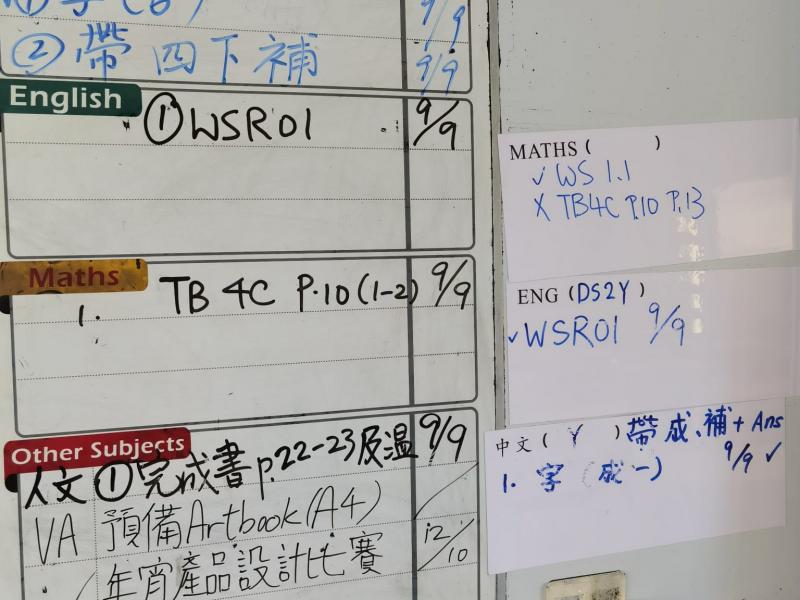 ① 字(6) 9/9
② 帶四下補 9/9
English
① WSR01 9/9
Maths
1. TB 4C P.10 (1-2) 9/9
Other Subjects
人文 ① 完成書 p.22-23及溫 9/9
VA 預備Artbook(A4)
年宵產品設計比賽 12/10
MATHS ( )
✓ WS 1.1
X TB4C P.10 P.13
ENG (DS2Y)
✓ WSR01 9/9
中文 ( Y ) 帶成、補+Ans
1. 字 (成一) 9/9 ✓